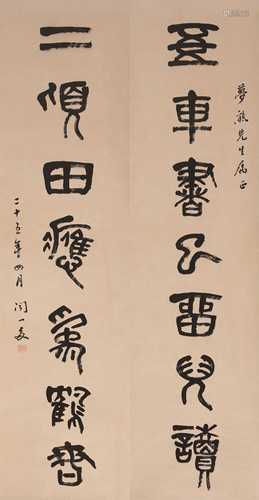 夢熊先生屬正
五車書已留兒讀
二頃田應為鶴謀
二十五年四月 聞一多